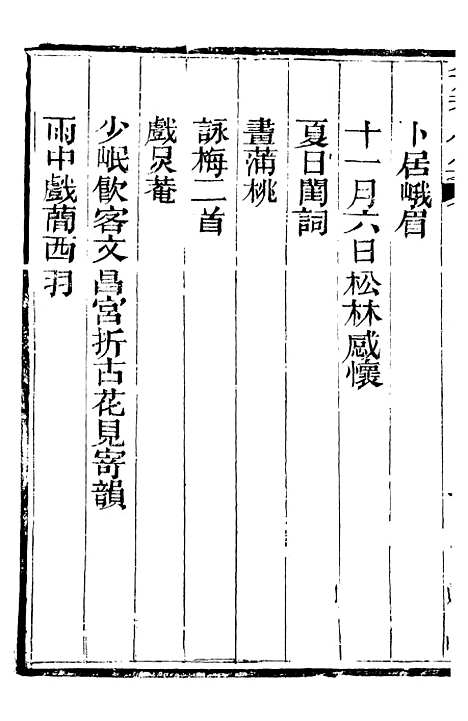 卜居峨眉
十一月六日松林感懷
夏日閨詞
畫蒲桃
詠梅二首
戲炅菴
少岷飲客文昌宮折古花見寄韻
雨中戲蕳西羽